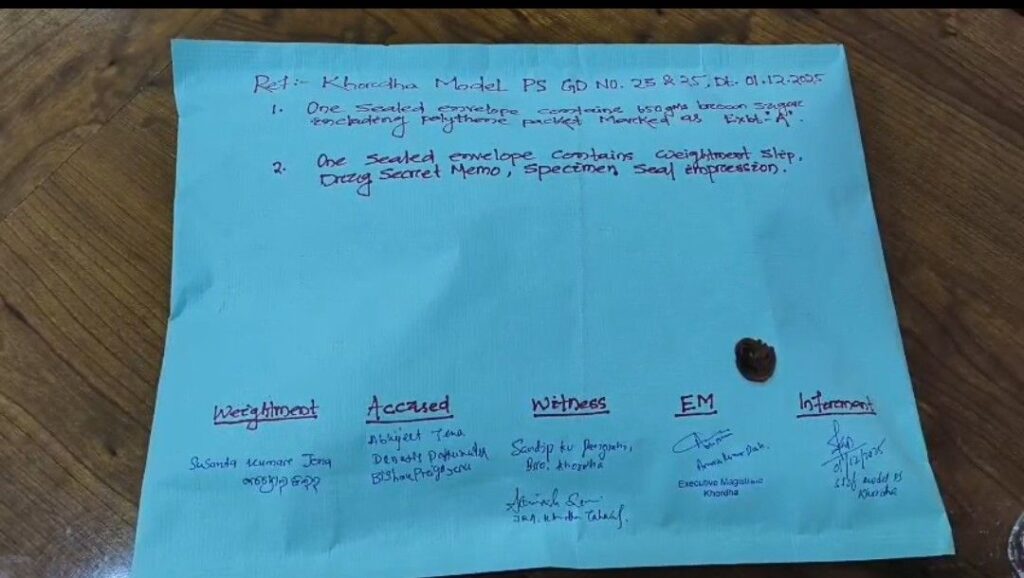 Ref:- Khordha Model PS GD NO. 25 & 25, Dt. 01.12.2025
1. One sealed envelope contains 650gms brown sugar
including polythene packet Marked as Exbt-"A".
2. One sealed envelope contains weightment slip,
Drug Secret Memo, Specimen Seal impression.
Weightment
Susanta Kumar Jena
Accused
Abhijeet Jena
Witness
Sandip Ku
Khordha
EM
Executive Magistrate
Khordha
Informent
01/12/2025
model PS
Khordha